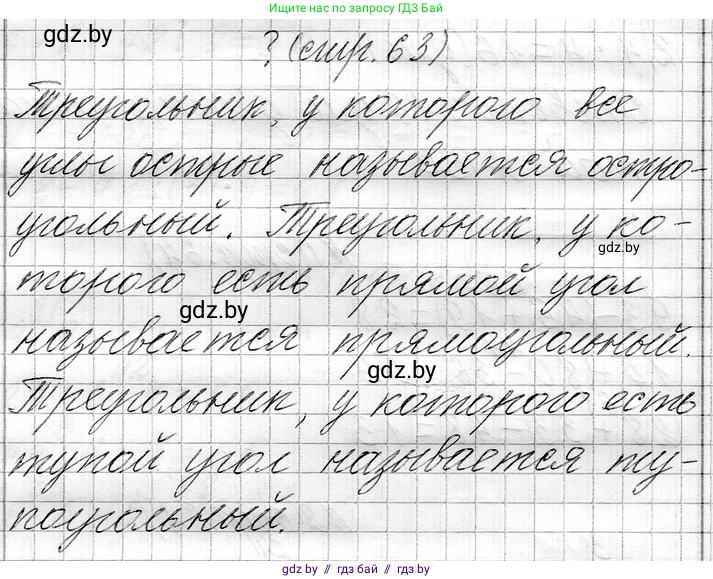 Ищите нас по запросу ГДЗ Бай
gdz.by
? (стр. 63)
Треугольник, у которого все
углы острые называется остро-
угольный. Треугольник, у ко-
gdz.by
торого есть прямой угол
gdz.by
называется прямоугольный.
gdz.by
Треугольник, у которого есть
тупой угол называется ту-
поугольный.
gdz.by // гдз бай // gdz.by